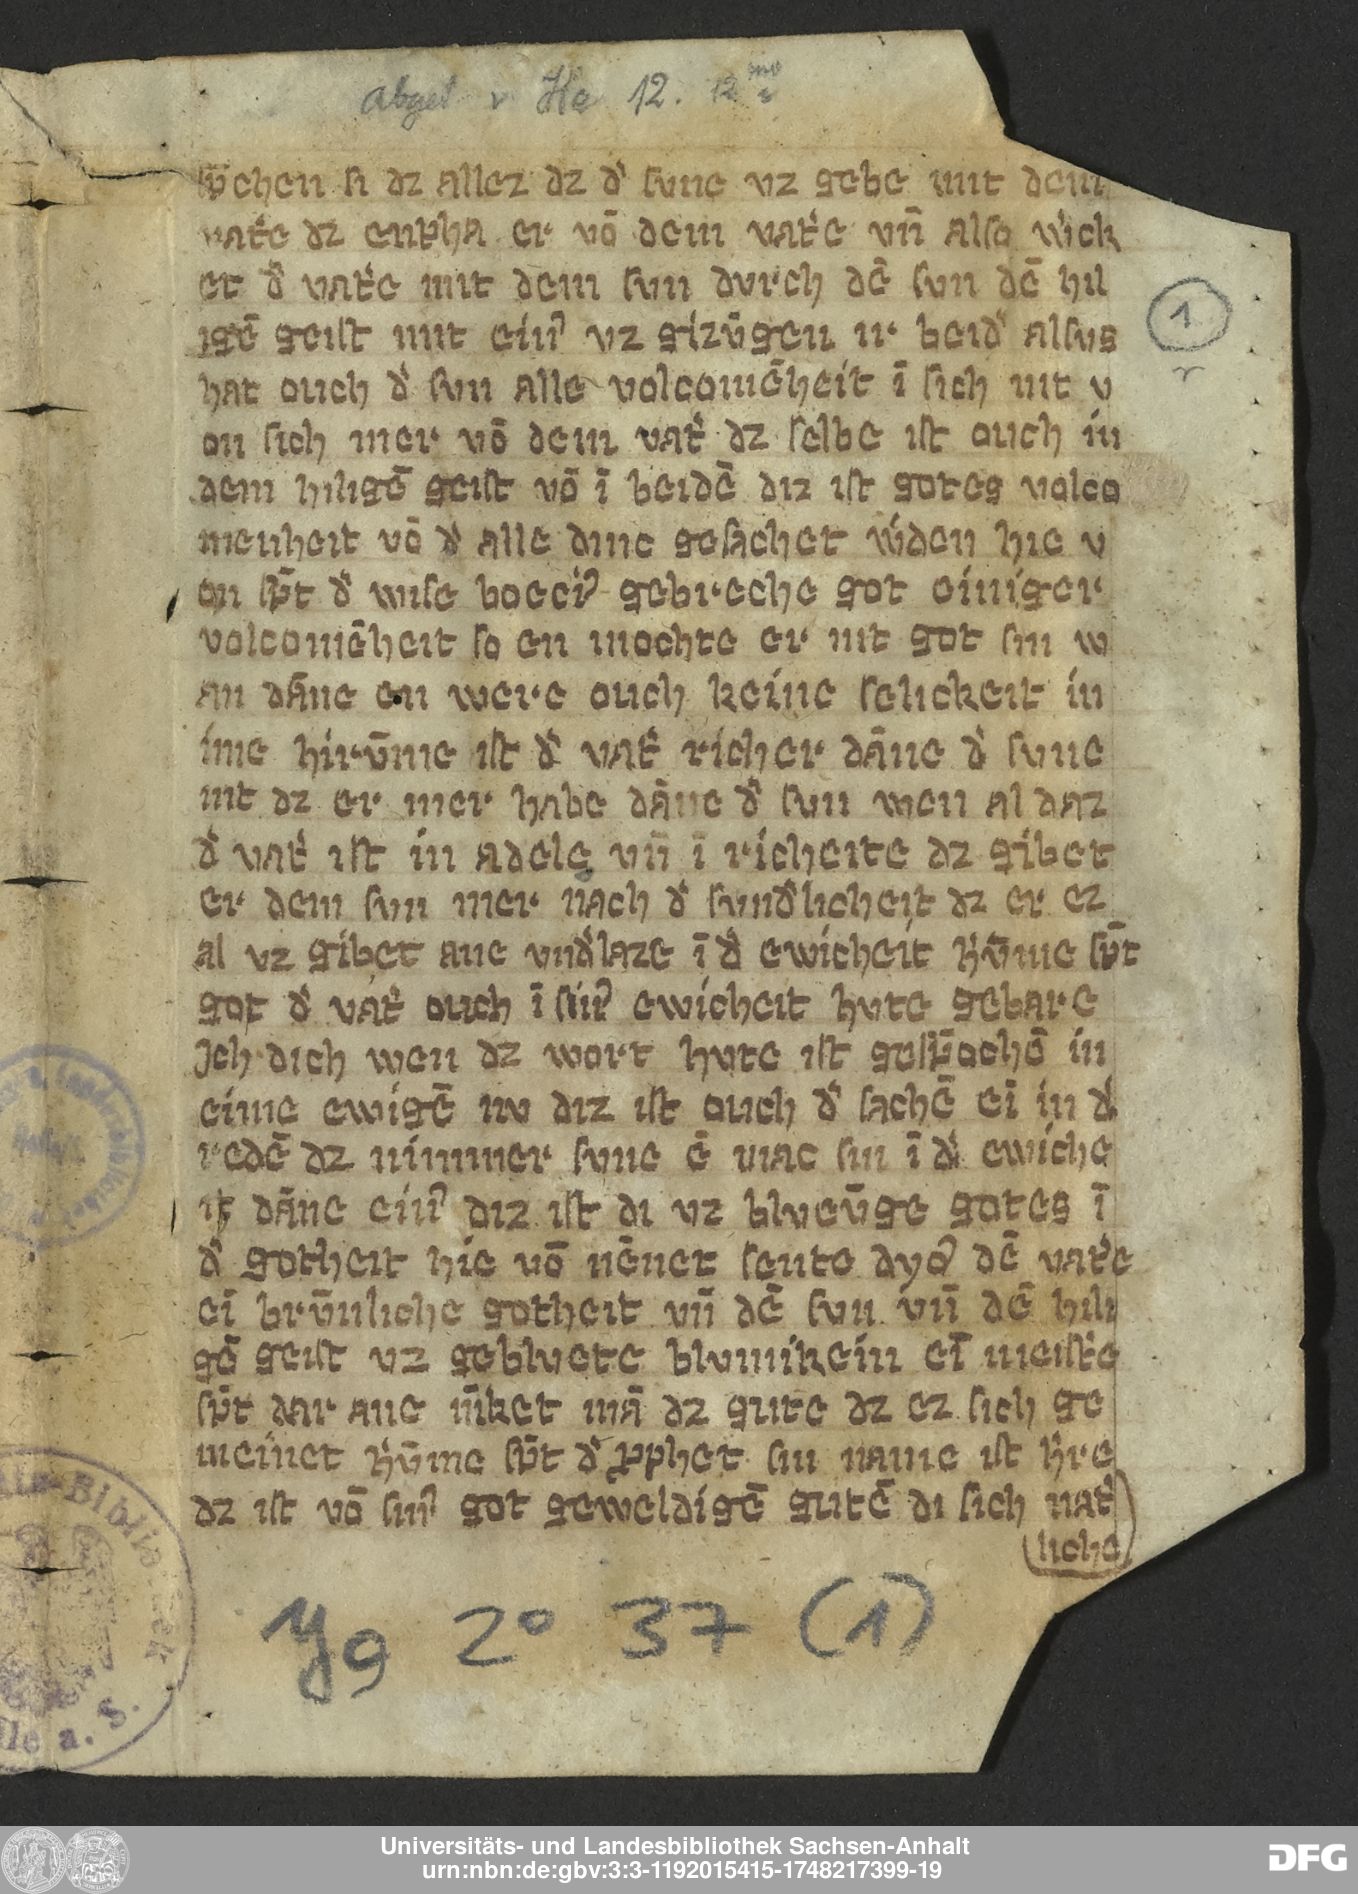 abgel v He 12. 12mo
sp̄chen si dz allez dz d̾ sune uz gebe mit dem
vat̾e dz enpha er vō dem vat̾e vn̄ also w̾ick
et d̾ vat̾e mit dem sun durch dē sun dē hil
igē geist mit ein᾽ uz gizūgen ir beid̾ alsus
hat ouch d̾ sun alle volcomēheit ī sich nit v
on sich mer vō dem vat̾ dz selbe ist ouch in
dem hiligē geist vō ī beidē diz ist gotes volco
menheit vō d̾ alle dinc gesachet w̾den hie v
on sp̄t d̾ wise boeci᾽ gebreche got einiger
volcomēheit so en mochte er nit got sin w
an dāne en were ouch keine selickeit in
ime hirūme ist d̾ vat̾ richer dāne d̾ sune
nit dz er mer habe dāne d̾ sun wen al daz
d̾ vat̾ ist in adele vn̄ ī richeite dz gibet
er dem sun mer nach d̾ sund̾licheit dz er ez
al uz gibet ane vnd̾laze ī d̾ ewicheit h̾ūme sp̄t
got d̾ vat̾ ouch ī sin᾽ ewicheit hute gebare
Ich dich wen dz wort hute ist gesp̄ochē in
eime ewigē nu diz ist ouch d̾ sachē eī in d̾
redē dz nimmer sune ē mac sin ī d̾ ewiche
it dāne ein᾽ diz ist di uz blueūge gotes ī
d̾ gotheit hie vō nēnet sente dyo᾽ dē vat̾e
eī brūnliche gotheit vn̄ dē sun vn̄ dē hili
gē geist uz gebluete blumikein eī meist̾e
sp̄t dar ane m̄ket mā dz gute dz ez sich ge
meinet h̾ūme sp̄t d̾ ꝓphet sin name ist h̾re
dz ist vō sin᾽ got geweldigē gutē di sich nat̾
liche
1
r
Yg 2° 37 (1)
Bibliothek
lle a. S.
Universitäts- und Landesbibliothek Sachsen-Anhalt
urn:nbn:de:gbv:3:3-1192015415-1748217399-19
DFG